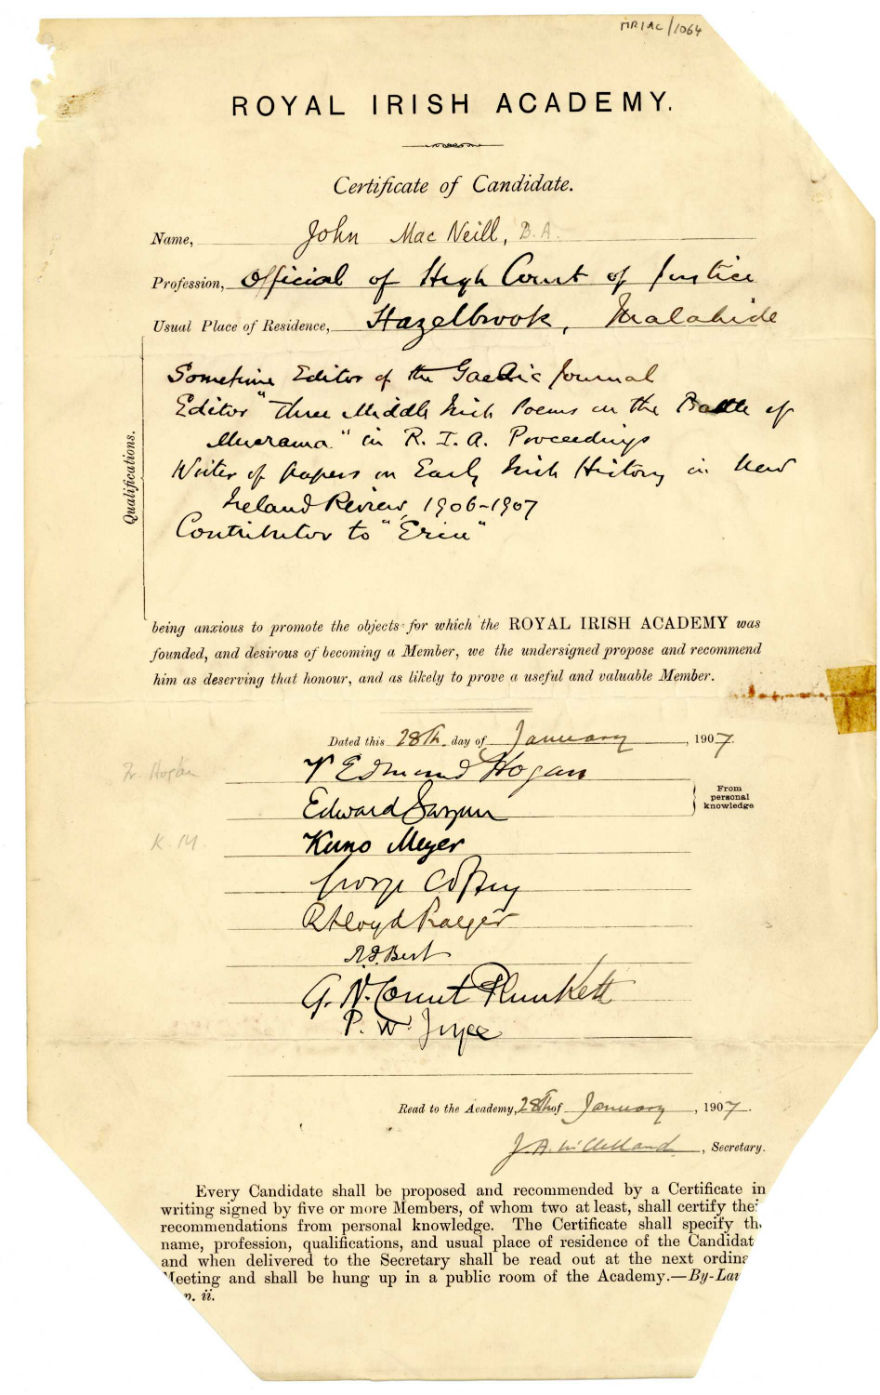 MRIAC/1064
ROYAL IRISH ACADEMY.
Certificate of Candidate.
Name, John Mac Neill, B.A.
Profession, Official of High Court of Justice
Usual Place of Residence, Hazelbrook, Malahide
Qualifications.
Sometime Editor of the Gaelic Journal
Editor "Three Middle Irish Poems on the Battle of
Mucrama" in R. I. A. Proceedings
Writer of papers on Early Irish History in New
Ireland Review, 1906-1907
Contributor to "Eriu"
being anxious to promote the objects for which the ROYAL IRISH ACADEMY was
founded, and desirous of becoming a Member, we the undersigned propose and recommend
him as deserving that honour, and as likely to prove a useful and valuable Member.
Dated this 28th day of January, 1907.
Fr. Hogan
Edmund Hogan
Edward Gwynn
From
personal
knowledge
K. M.
Kuno Meyer
George Coffey
R Lloyd Praeger
R.I. Best
G. N. Count Plunkett
P. W. Joyce
Read to the Academy, 28th of January, 1907.
J. A. McClelland, Secretary.
Every Candidate shall be proposed and recommended by a Certificate in
writing signed by five or more Members, of whom two at least, shall certify thei
recommendations from personal knowledge. The Certificate shall specify th
name, profession, qualifications, and usual place of residence of the Candidat
and when delivered to the Secretary shall be read out at the next ordina
Meeting and shall be hung up in a public room of the Academy.—By-Law
p. ii.